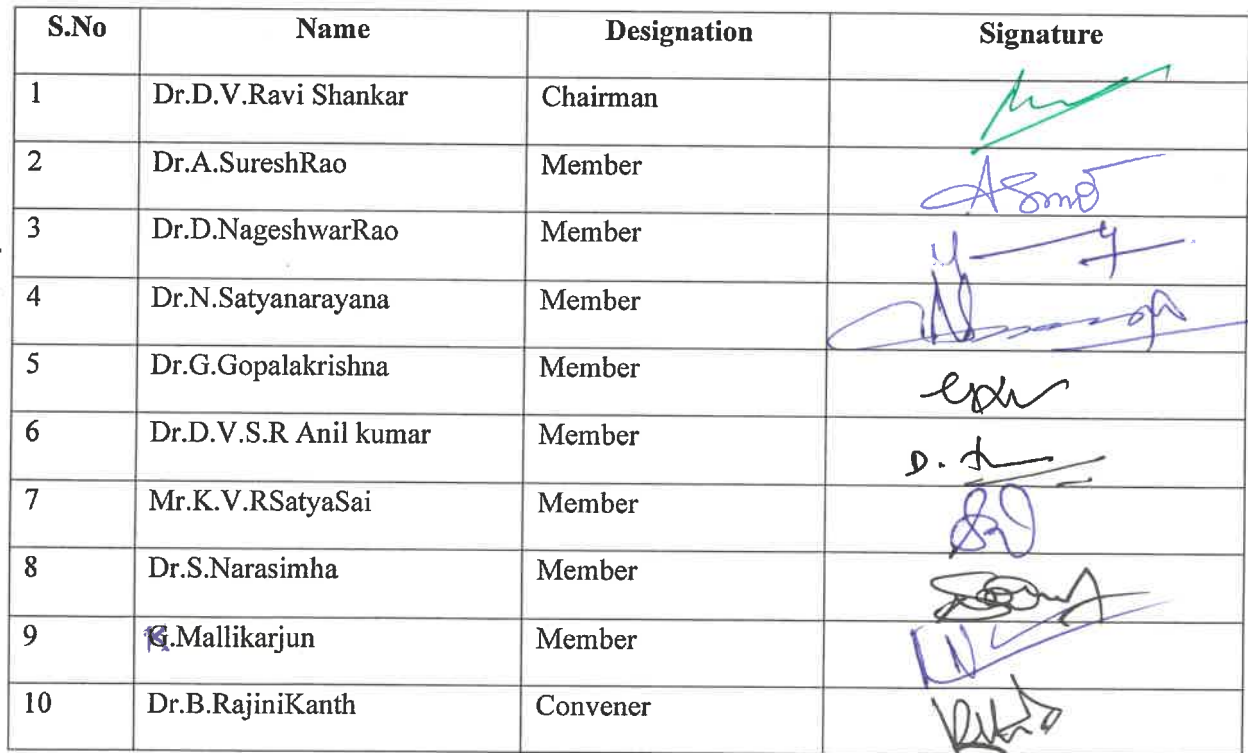 S.No Name Designation Signature
1 Dr.D.V.Ravi Shankar Chairman
2 Dr.A.SureshRao Member
3 Dr.D.NageshwarRao Member
4 Dr.N.Satyanarayana Member
5 Dr.G.Gopalakrishna Member
6 Dr.D.V.S.R Anil kumar Member D.
7 Mr.K.V.RSatyaSai Member
8 Dr.S.Narasimha Member
9 K.Mallikarjun Member
10 Dr.B.RajiniKanth Convener